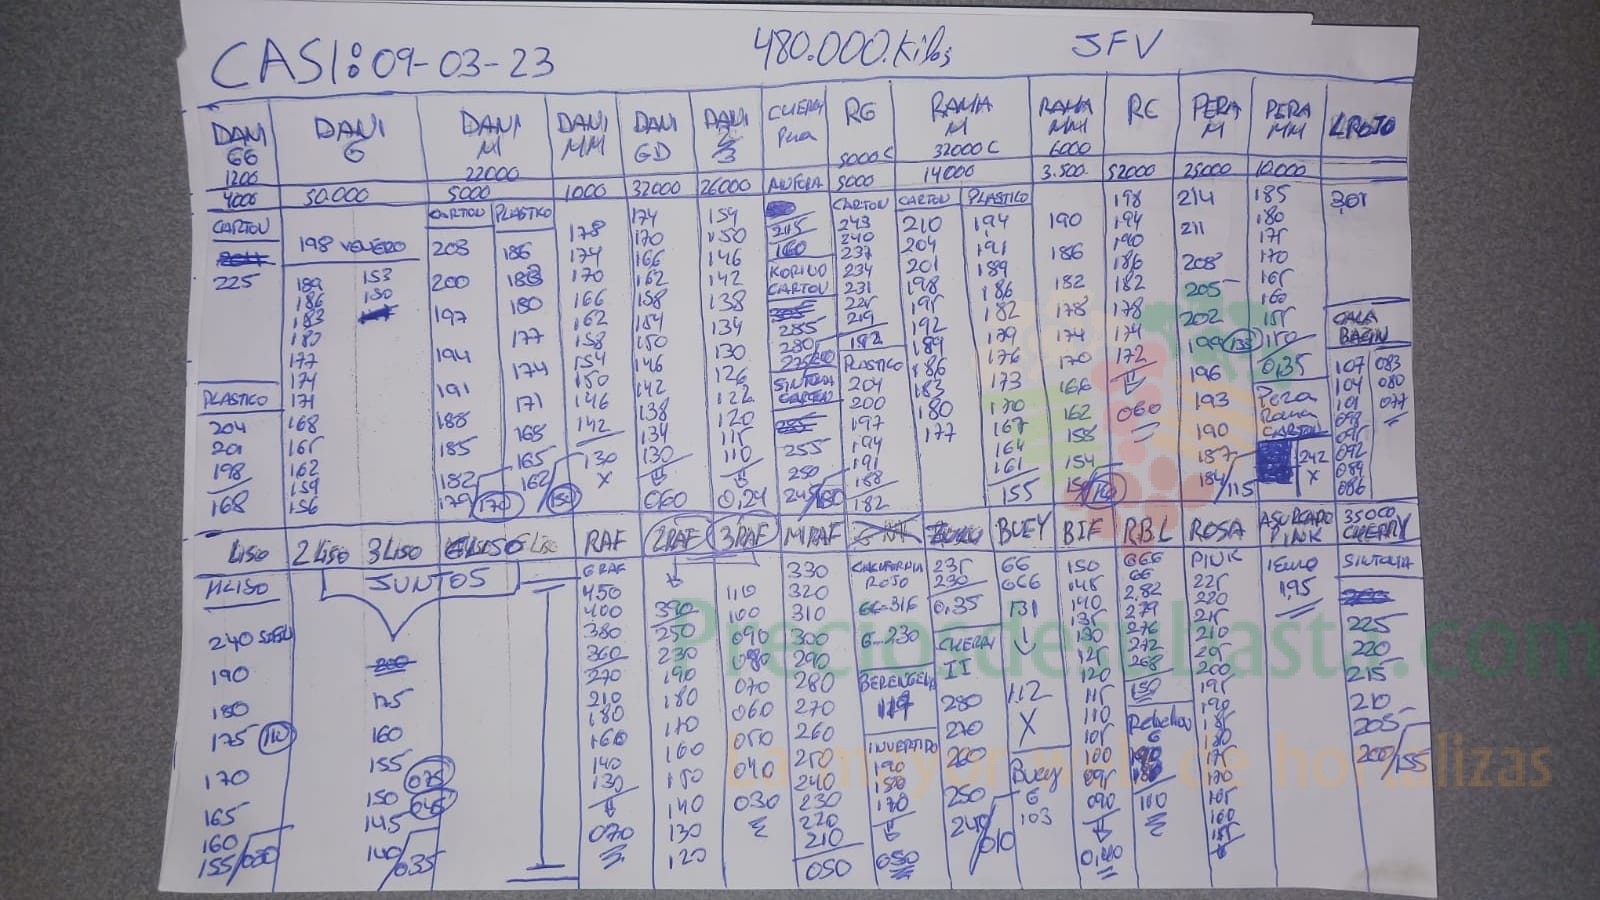 CASI: 09-03-23 480.000.Kilos JFV
DANI GG DANI G DANI M DANI MM DANI GD DANI CHERRY Pera RG RAMA M RAMA MM RC PERA M PERA MM L ROJO
1200 22000 5000 C 32000 C 6000
4000 50.000 5000 1000 32000 26000 5000 14000 3.500. 52000 25000 10.000
CARTON
225
PLASTICO
204
201
198
168
198 VENERO
189 153
186 150
183
180
177
174
171
168
165
162
159
156
CARTON PLASTICO
203 186
200 183
197 180
194 177
191 174
188 171
185 168
182 165
179 170 162 150
178
174
170
166
162
158
154
150
146
142
130
X
174
170
166
162
158
154
150
146
142
138
134
130
060
154
150
146
142
138
134
130
126
122
120
115
110
0,24
215
160
KORINO
CARTON
285
280
SINTONIA
CARTON
255
250
245/180
CARTON
243
240
237
234
231
225
219
182
PLASTICO
204
200
197
194
191
188
182
CARTON PLASTICO
210 194
204 191
201 189
198 186
195 182
192 179
189 176
186 173
183 170
180 167
177 164
161
155
190
186
182
178
174
170
166
162
158
154
198
194
190
186
182
178
174
172
060
214
211
208
205
202
199 135
196
193
190
187
184/115
185
180
175
170
165
160
155
150
0,35
Pera
Rama
CARTON
242
X
301
CALA
BACIN
107 083
104 080
101 077
098
095
092
089
086
LISO 2 LISO 3 LISO LISO RAF 2RAF 3RAF MRAF BUEY BIF R.B.L ROSA ASURCADO PINK 35000 CHERRY
MLISO
240
190
180
175 110
170
165
160
155/030
JUNTOS
175
160
155 075
150 045
145
140/035
G RAF
450
400
380
360
270
210
180
160
140
130
070
390
250
230
190
180
170
160
150
140
130
120
110
100
090
080
070
060
050
040
030
330
320
310
300
290
280
270
260
250
240
230
220
210
050
CALIFORNIA
ROJO
GG-316
G-230
BERENGENA
INVERTIDO
190
180
170
050
235
230
0,35
CHERRY
II
280
270
260
250
240/010
GG
066
131
112
X
Buey
G
103
150
145
140
135
130
125
120
115
110
105
100
095
090
0,40
GGG
GG
2,82
279
276
272
268
150
Rebelion
G
190
180
100
PINK
225
220
215
210
205
200
195
190
185
180
175
170
165
160
155
195
SINTONIA
225
220
215
210
205
200/155
Preciosdesubasta.com
la mayor web de hortalizas